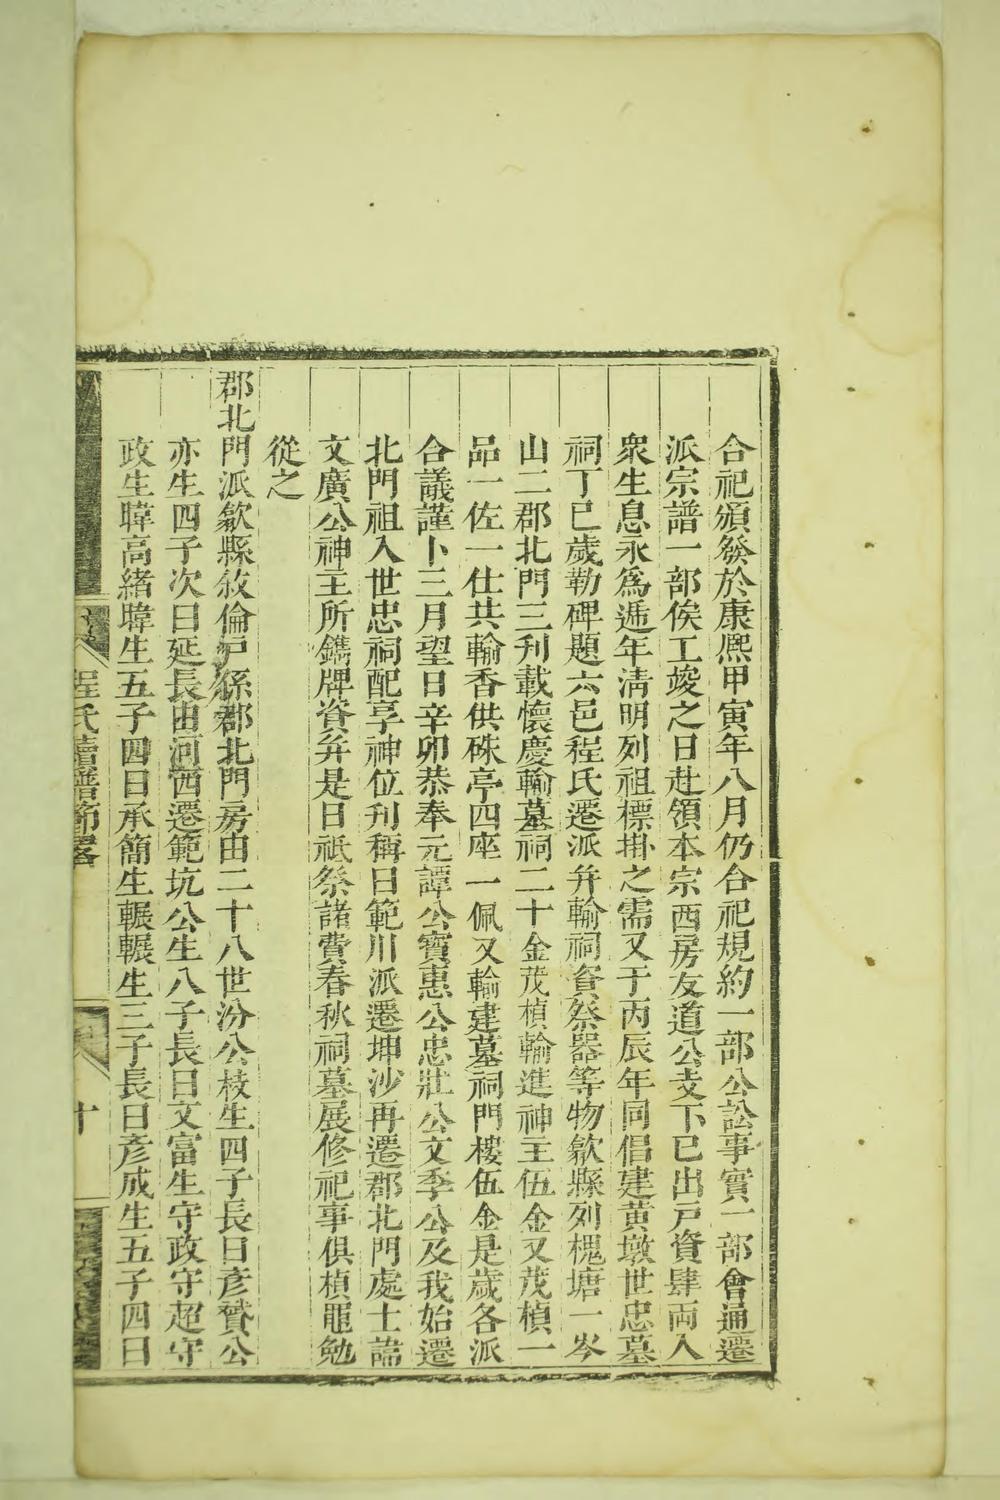 合祀頒發於康熙甲寅年八月仍合祀規約一部公訟事實一部會通遷
派宗譜一部俟工竣之日赴領本宗西房友道公支下已出戸資肆両入
衆生息永爲逓年淸明列祖標掛之需又于丙辰年同倡建黄墩世忠墓
祠丁巳歲勒碑題六邑程氏遷派幷輸祠資祭器等物歙縣列槐塘一岑
山二郡北門三刋載懷慶輸墓祠二十金茂楨輸進神主伍金又茂楨一
品一佐一仕共輸香供硃亭四座一佩又輸建墓祠門樓伍金是歲各派
合議謹卜三月望日辛卯恭奉元譚公寶惠公忠壯公文季公及我始遷
北門祖入世忠祠配享神位刋稱曰範川派遷坤沙再遷郡北門處士諱
文廣公神主所鐫牌資幷是日祗祭諸費春秋祠墓展修祀事俱楨黽勉
從之
郡北門派歙縣敘倫戸係郡北門房由二十八世汾公枝生四子長曰彦贇公
亦生四子次曰延長由河西遷範坑公生八子長曰文富生守政守超守
政生暐高緒暐生五子四曰承簡生輾輾生三子長曰彦成生五子四曰
程氏續譜節畧
十